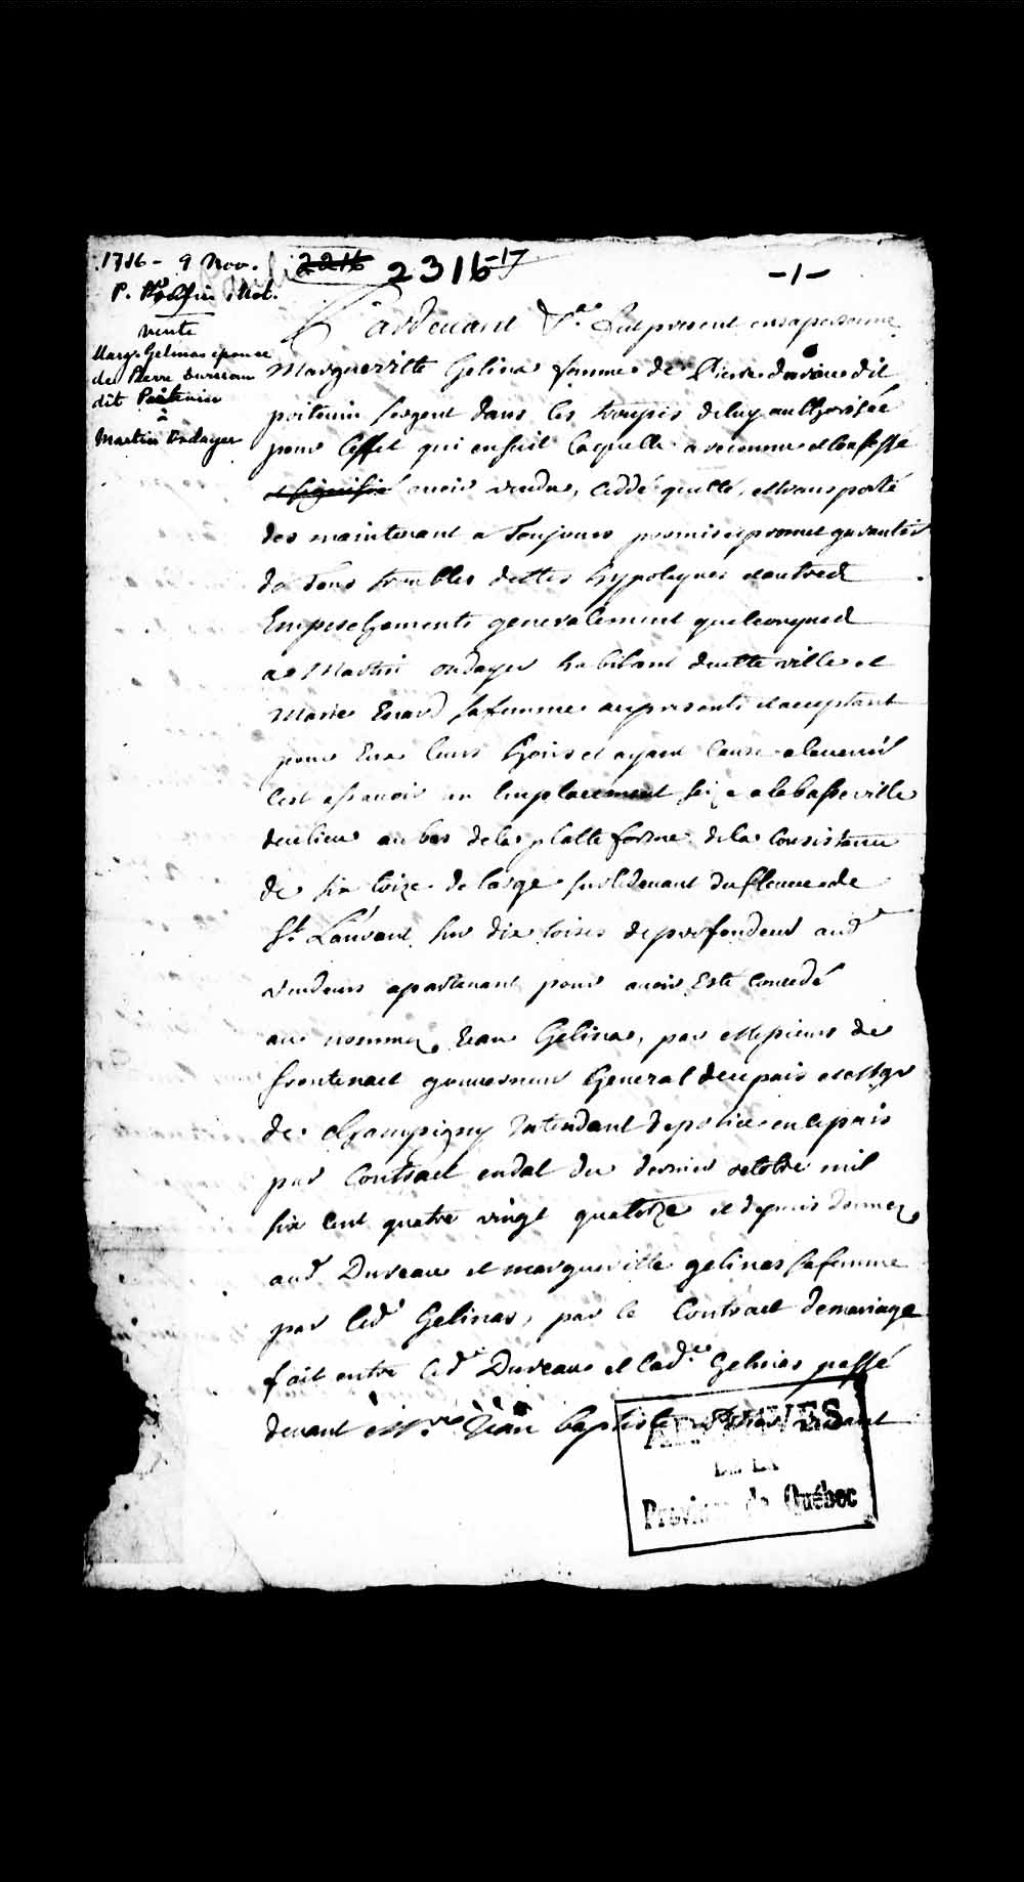 1716 - 9 Nov.
2216 2316-17
-1-
P. Not.
vente
Marg. Gelinas épouse
de Pierre Dureau
dit Poitevin
à
Martin Ondayer
Pardevant &.ce fut present en sa personne
Margueritte Gelinas femme de Pierre dureau dit
poitevin sergent dans les troupes de luy authorisée
pour leffet qui ensuit laquelle a reconnu et confessé
et signifié avoir vendue, ceddé quitté, et transporté
des maintenant a Toujours promis et promet garantir
de Tous troubles dettes hypoteques et autres
Empeschements generalement quelconques
a Martin ondayer habitant de cette ville et
Marie Enard sa femme a ce presents et acceptant
pour Eux leurs hoirs et ayant cause a lavenir
Cest assavoir un Emplacement size a la basse ville
de ce lieu au bas de la platte forme de la consistance
de six toize de large sur le devant du fleuve de
St. Laurent sur dix toises de profondeur aud
vendeurs apartenant pour avoir Esté concedé
au nommez Jean Gelinas, par Messieurs de
frontenact gouverneur General de ce pais et Mgr
de Champigny Intendant de police en ce pais
par Contract en dat du dernier octobre mil
six cent quatre vingt quatorze et depuis donnez
aud Dureau et margueritte gelinas sa femme
par led Gelinas, par le Contract de mariage
fait entre led Dureau et lad.e Gelinas passé
devant M.re Jean baptiste
ARCHIVES
DE LA
Province de Québec